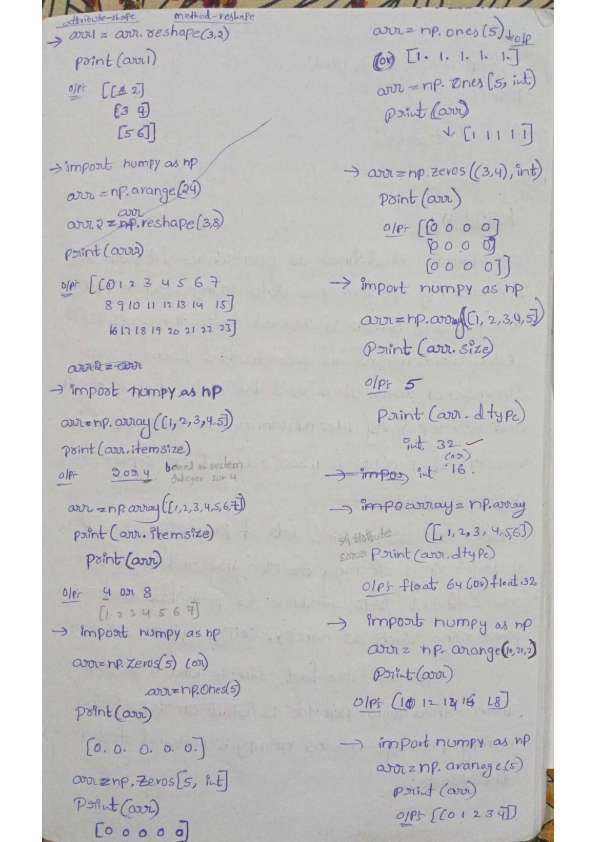 attribute-shape method-reshape
→ arr1 = arr.reshape(3,2)
print(arr1)
o/p:- [[1 2]
[3 4]
[5 6]]
→ import numpy as np
arr = np.arange(24)
arr
arr2 = np.reshape(3,8)
print(arr2)
o/p:- [[0 1 2 3 4 5 6 7
8 9 10 11 12 13 14 15]
16 17 18 19 20 21 22 23]
arr2 = arr
→ import numpy as np
arr=np.array([1,2,3,4.5])
print(arr.itemsize)
o/p:- 2 or 4 based on system
integer 2 or 4
arr=np.array([1,2,3,4,5,6,7])
print(arr.itemsize)
print(arr)
o/p:- 4 or 8
[1 2 3 4 5 6 7]
→ import numpy as np
arr=np.zeros(5) (or)
arr=np.ones(5)
print(arr)
[0. 0. 0. 0. 0.]
arr=np.zeros[5, int]
print(arr)
[0 0 0 0 0]
arr = np.ones(5) → o/p
(or) [1. 1. 1. 1. 1.]
arr = np.ones[5, int]
print(arr)
↓ [1 1 1 1 1]
→ arr=np.zeros((3,4), int)
print(arr)
o/p:- [[0 0 0 0]
[0 0 0 0]
[0 0 0 0]]
→ import numpy as np
arr=np.array([1,2,3,4,5])
Print(arr.size)
o/p:- 5
Print(arr.dtype)
int 32 ✓
(or)
→ impor int 16.
→ impo array = np.array
([1,2,3,4,5.6])
attribute
Print(arr.dtype)
o/p:- float 64 (or) float 32
→ import numpy as np
arr = np.arange(10,20,2)
Print(arr)
o/p:- [10 12 14 16 18]
→ import numpy as np
arr=np.arange(5)
Print(arr)
o/p:- [[0 1 2 3 4]]